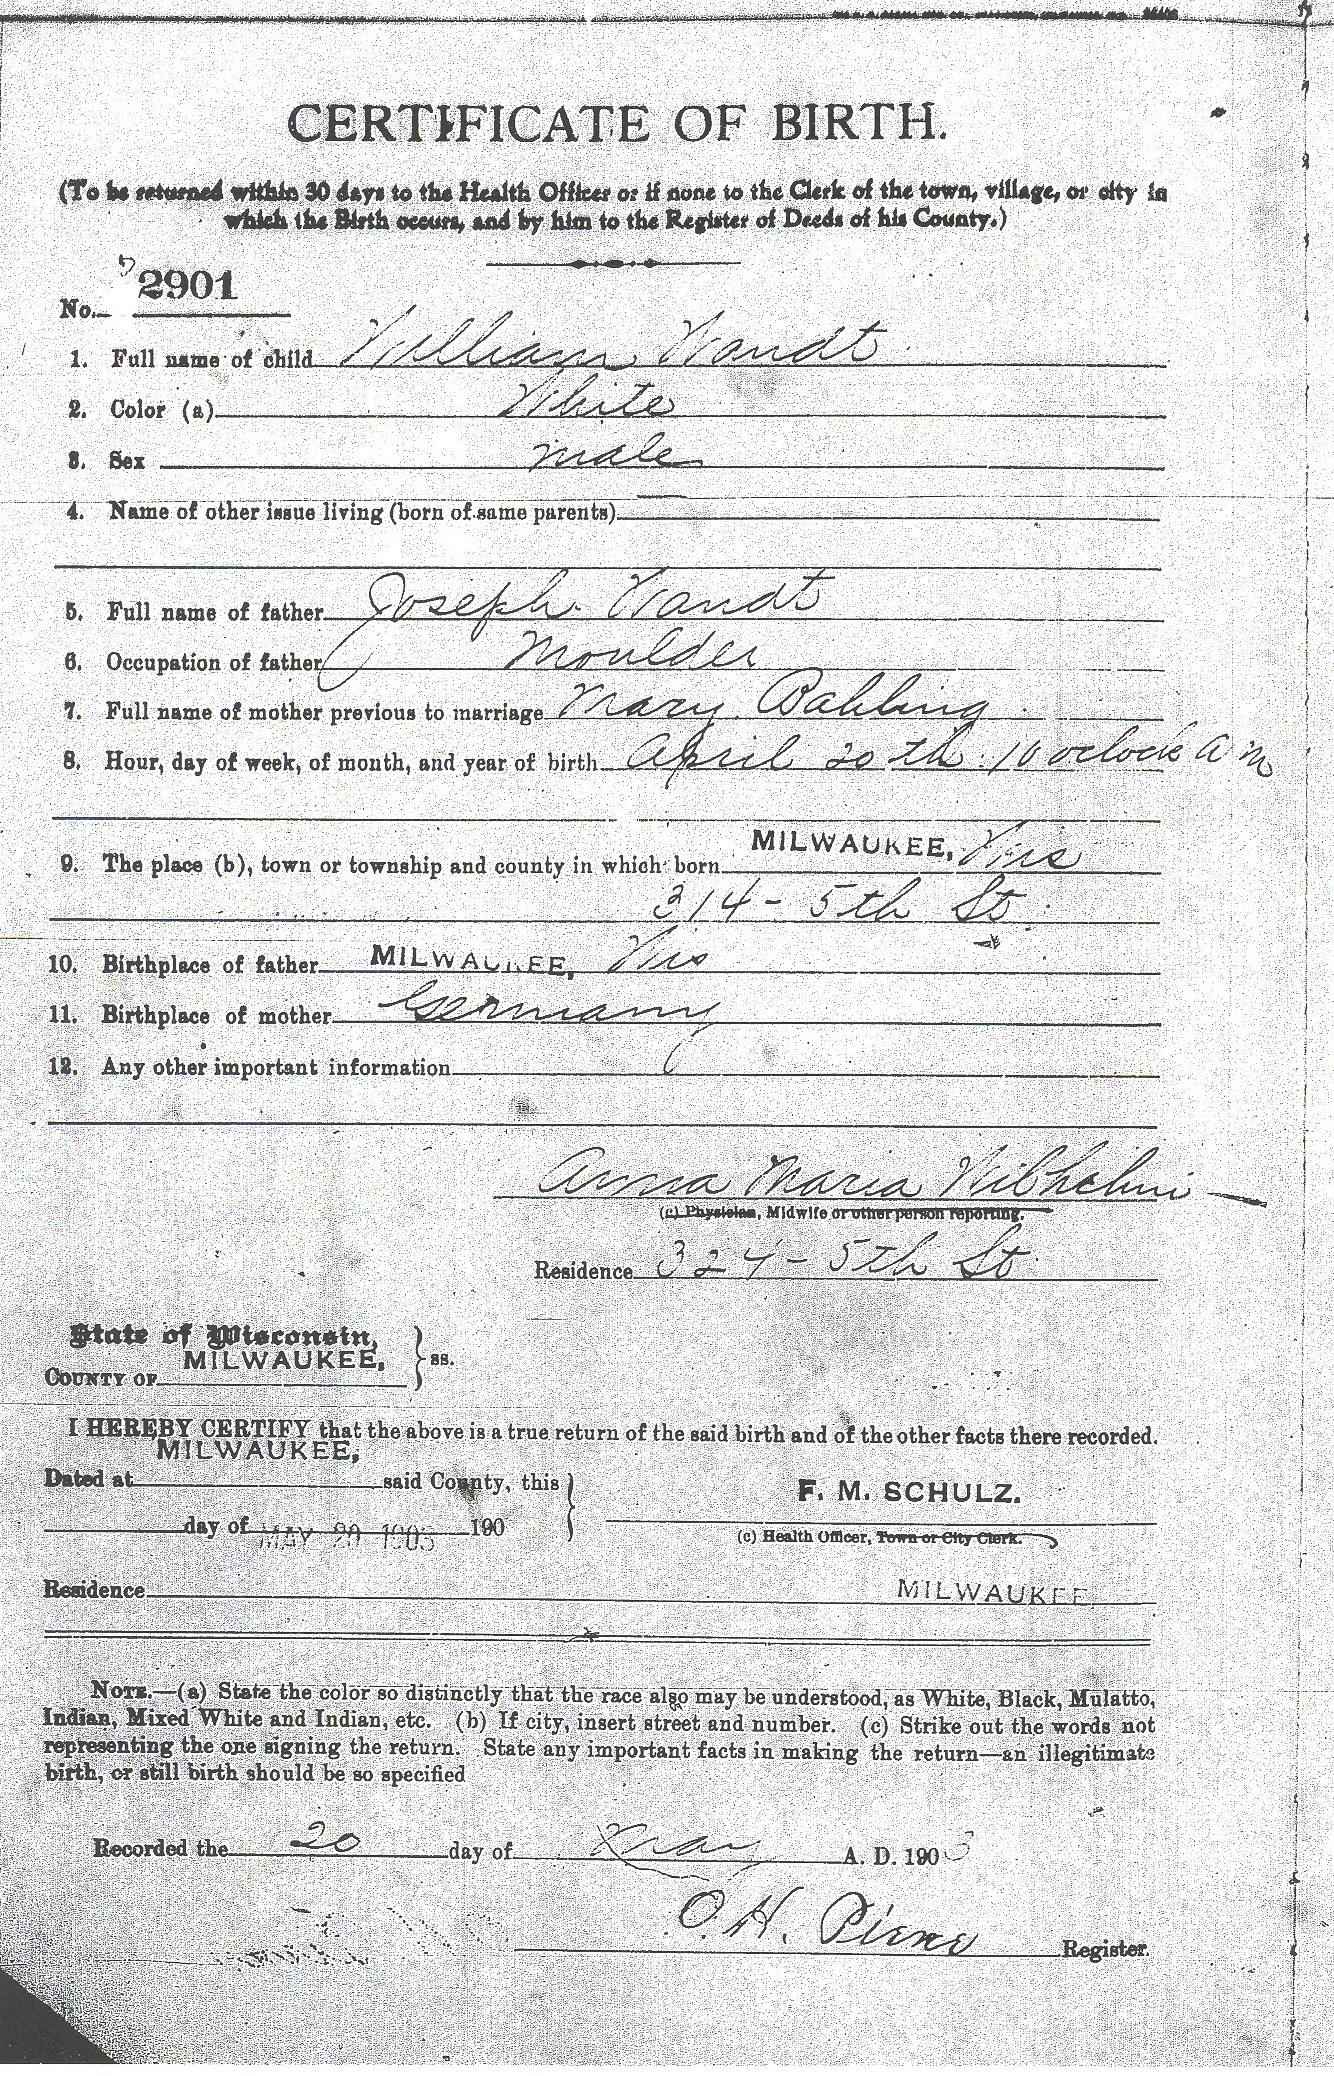 CERTIFICATE OF BIRTH.
(To be returned within 30 days to the Health Officer or if none to the Clerk of the town, village, or city in
which the Birth occurs, and by him to the Register of Deeds of his County.)
No. 2901
1. Full name of child William Wandt
2. Color (a) White
3. Sex male
4. Name of other issue living (born of same parents)
5. Full name of father Joseph Wandt
6. Occupation of father Moulder
7. Full name of mother previous to marriage Mary Bahling
8. Hour, day of week, of month, and year of birth April 20th 10 oclock A M
9. The place (b), town or township and county in which born MILWAUKEE, Wis
314 - 5th St
10. Birthplace of father MILWAUKEE, Wis
11. Birthplace of mother Germany
12. Any other important information
Anna Maria Wilhelmi
(c) Physician, Midwife or other person reporting.
Residence 324 - 5th St
State of Wisconsin,
COUNTY OF MILWAUKEE, } ss.
I HEREBY CERTIFY that the above is a true return of the said birth and of the other facts there recorded.
Dated at MILWAUKEE, said County, this
F. M. SCHULZ.
day of MAY 20 1903 190
(c) Health Officer, Town or City Clerk.
Residence MILWAUKEE
NOTE.—(a) State the color so distinctly that the race also may be understood, as White, Black, Mulatto,
Indian, Mixed White and Indian, etc. (b) If city, insert street and number. (c) Strike out the words not
representing the one signing the return. State any important facts in making the return—an illegitimate
birth, or still birth should be so specified
Recorded the 20 day of May A. D. 1903
O. H. Register.